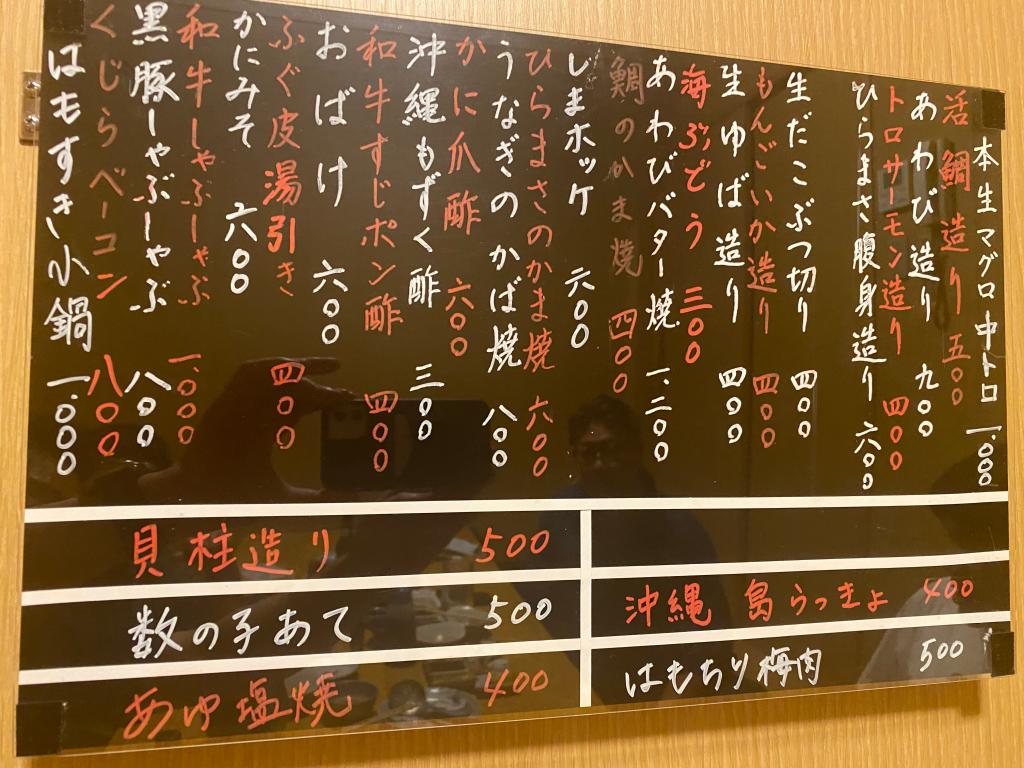 本生マグロ中トロ 一.〇〇〇
活鯛造り 五〇〇
あわび造り 九〇〇
トロサーモン造り 四〇〇
ひらまさ腹身造り 六〇〇
生だこぶつ切り 四〇〇
もんごいか造り 四〇〇
生ゆば造り 四〇〇
海ぶどう 三〇〇
あわびバター焼 一.二〇〇
鯛のかま焼 四〇〇
しまホッケ 六〇〇
ひらまさのかま焼 六〇〇
うなぎのかば焼 八〇〇
かに爪酢 六〇〇
沖縄もずく酢 三〇〇
和牛すじポン酢 四〇〇
おばけ 六〇〇
ふぐ皮湯引き 四〇〇
かにみそ 六〇〇
和牛しゃぶしゃぶ 一.〇〇〇
黒豚しゃぶしゃぶ 八〇〇
くじらベーコン 八〇〇
はもすき小鍋 一.〇〇〇
貝柱造り 500
数の子あて 500
あゆ塩焼 400
沖縄 島らっきょ 400
はもちり梅肉 500